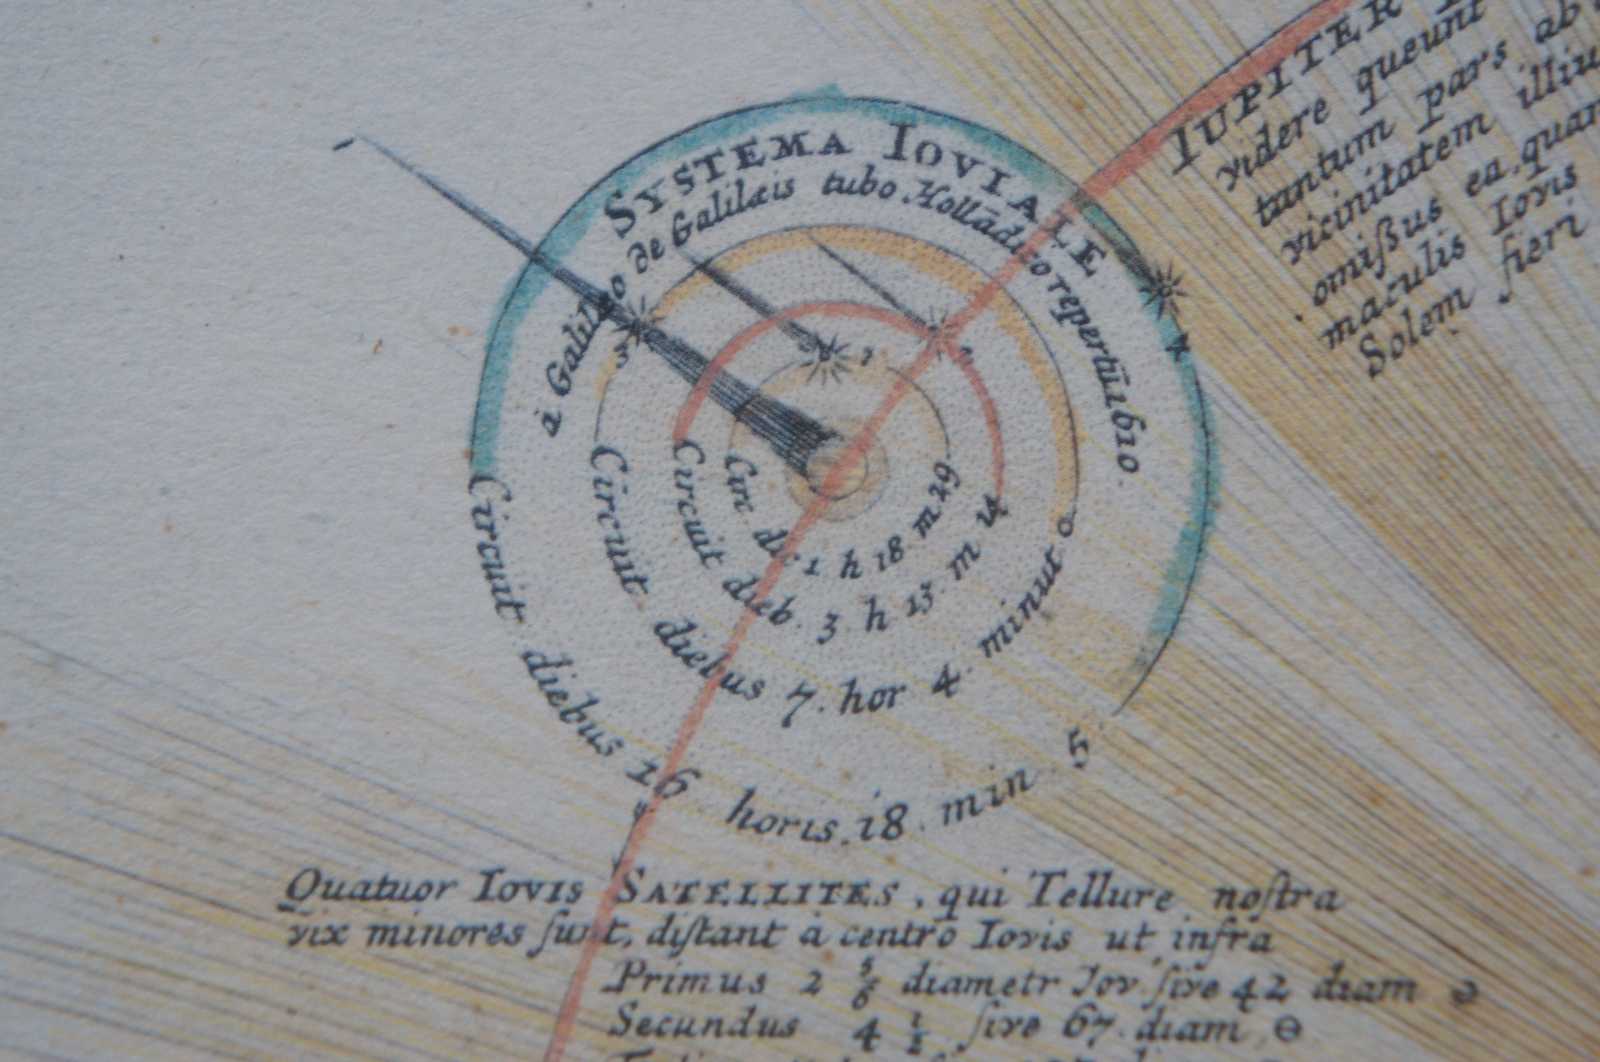 SYSTEMA IOVIALE
à Galilæo de Galilæis tubo Hollādico repertū 1610.
3
1
2
4
Circ di. 1 h 18 m 29
Circuit dieb. 3 h 13. m 14
Circuit diebus 7. hor 4. minut 0
Circuit diebus 16 horis. 18. min 5
IUPITER
videre queunt
tantum pars ab
vicinitatem illiu
omißus ea quan
maculis Iovis
Solem fieri
Quatuor IOVIS SATELLITES, qui Tellure noſtra
vix minores ſunt, diſtant à centro Iovis ut infra
Primus 2 5/6 diametr Iov. ſive 42 diam ⊖
Secundus 4 1/2 ſive 67. diam. ⊖